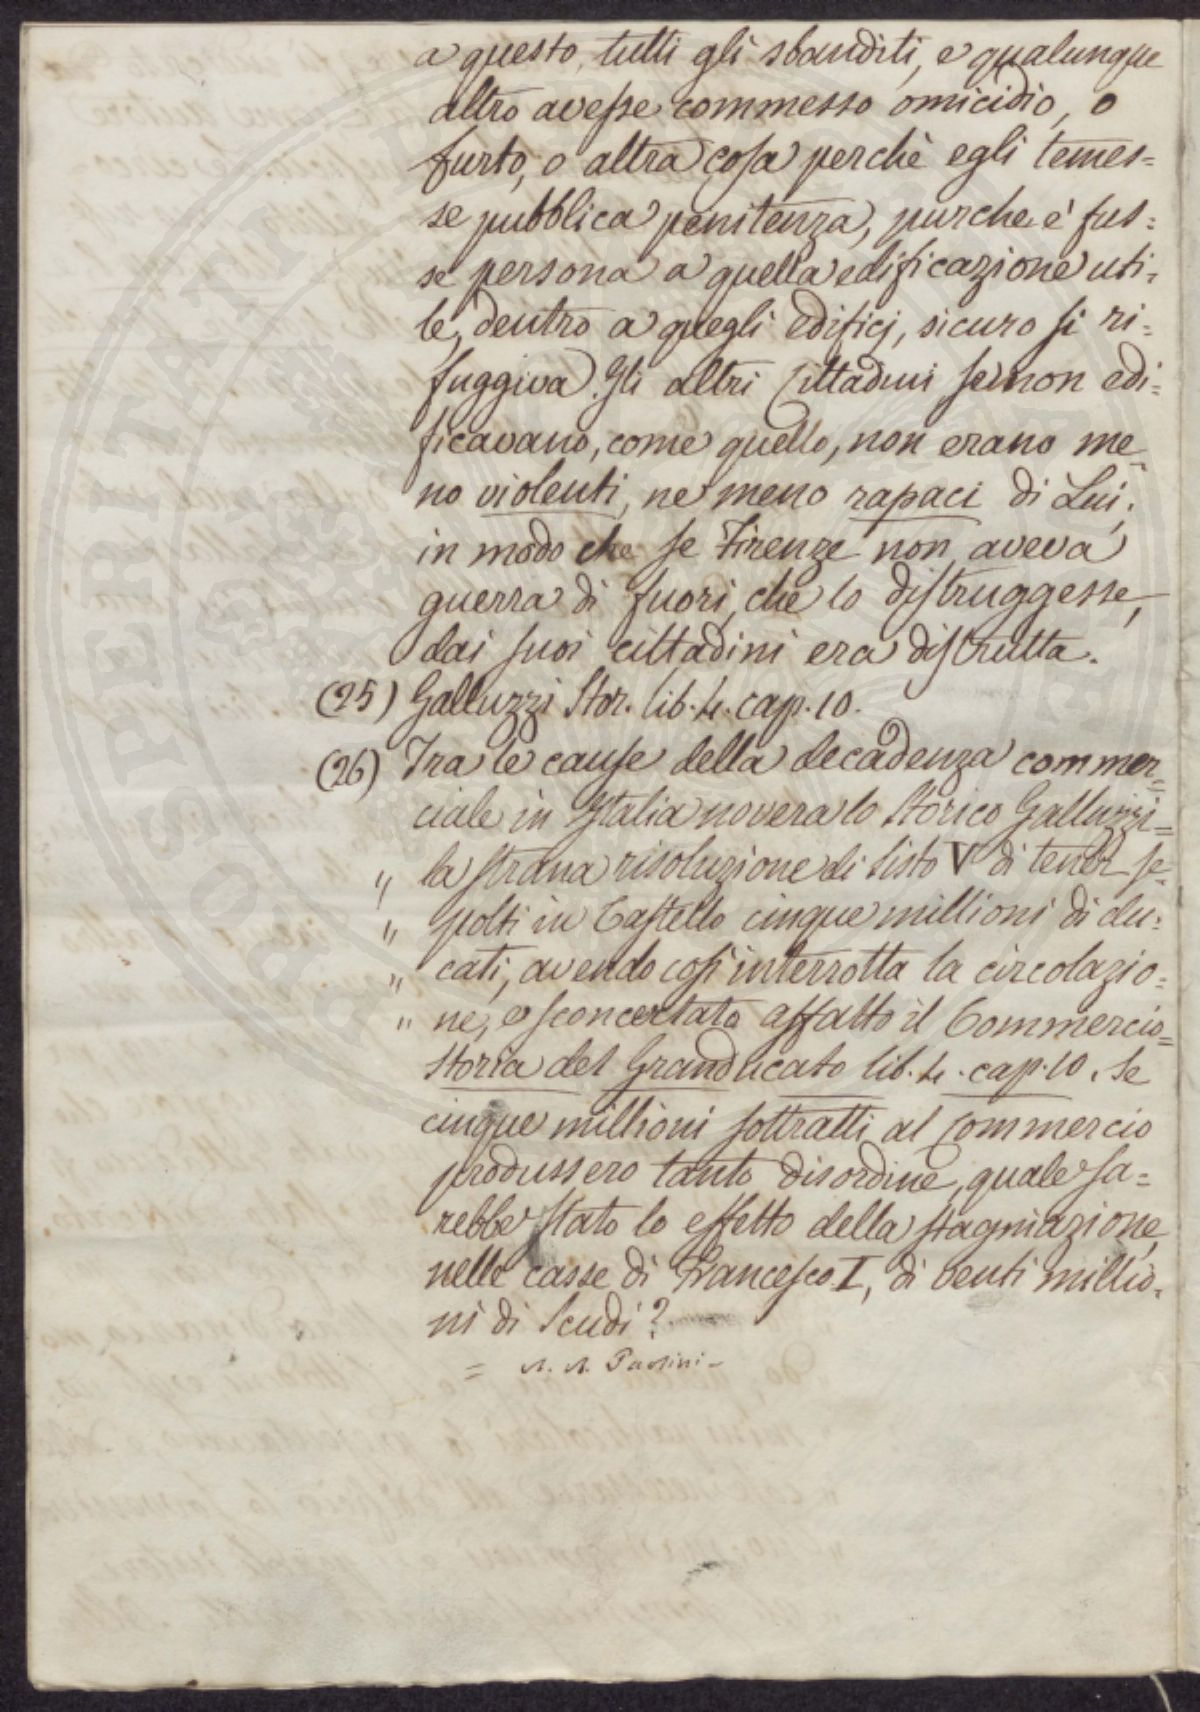 a questo, tutti gli sbanditi, e qualunque
altro avesse commesso omicidio, o
furto, o altra cosa perchè egli temes=
se pubblica penitenza, purche è fus=
se persona a quella edificazione uti=
le, dentro a quegli edificj, sicuro si ri=
fuggiva. Gli altri Cittadini se non edi=
ficavano, come quello, non erano me=
no violenti, ne meno rapaci di Lui;
in modo che se Firenze non aveva
guerra di fuori, che lo distruggesse,
dai suoi cittadini era distrutta.
(25) Galluzzi Stor. lib. 4. cap. 10.
(26) Tra le cause della decadenza commer=
ciale in Italia novera lo Storico Galluzzi=
" la strana risoluzione di Sisto V di tener se=
" polti in Castello cinque millioni di du=
" cati, avendo così interrotta la circolazio=
" ne, e sconcertato affatto il Commercio=
Storia del Granducato lib. 4. cap. 10. Se
cinque millioni sottratti al Commercio
produssero tanto disordine, quale sa=
rebbe stato lo effetto della stagniazione,
nelle casse di Francesco I, di venti millio=
ni di Scudi?
= A. A. Paolini -
PROSPERITATI